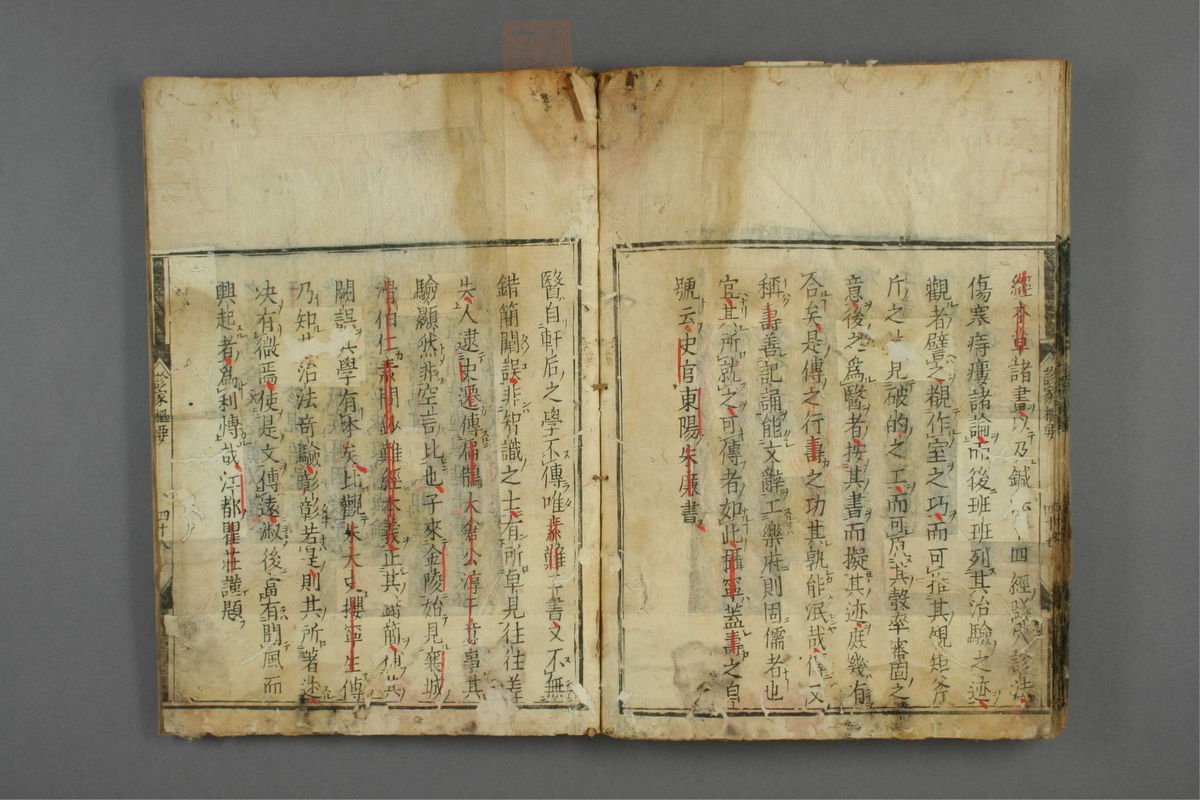 經本草諸書以及鍼 四經
傷寒痔瘻諸論而後班班列其治驗之迹
觀者譬之觀作室之巧而可茬其規矩斧
斤之 見破的之工而可 其彀率審固之
意後之爲醫者按其書而擬其迹庭幾有
合矣是傳之行壽之功其孰能泯哉傳文
稱壽善記誦能文辭工樂府則固儒者也
官其所就之可傳者如此攖寧蓋壽之自
號云史官東陽朱廉書
醫自軒后之學不傳唯素難 書文不無
錯簡闕誤非智識之士有所卓見往往差
失人逮史遷傳扁鵲太倉公淳于意事其
驗顯然非空言比也予來金陵始見襄城
滑伯仁素問鈔難經本義正其錯簡
闕誤 學有本矣比觀朱太史攖寧生傳
乃知其治法奇驗彰彰若是則其所著述
決有徵焉使是文傳遠淑後富有聞風而
興起者爲利博哉江都瞿莊謹題
診家樞要
四十八
診家樞要